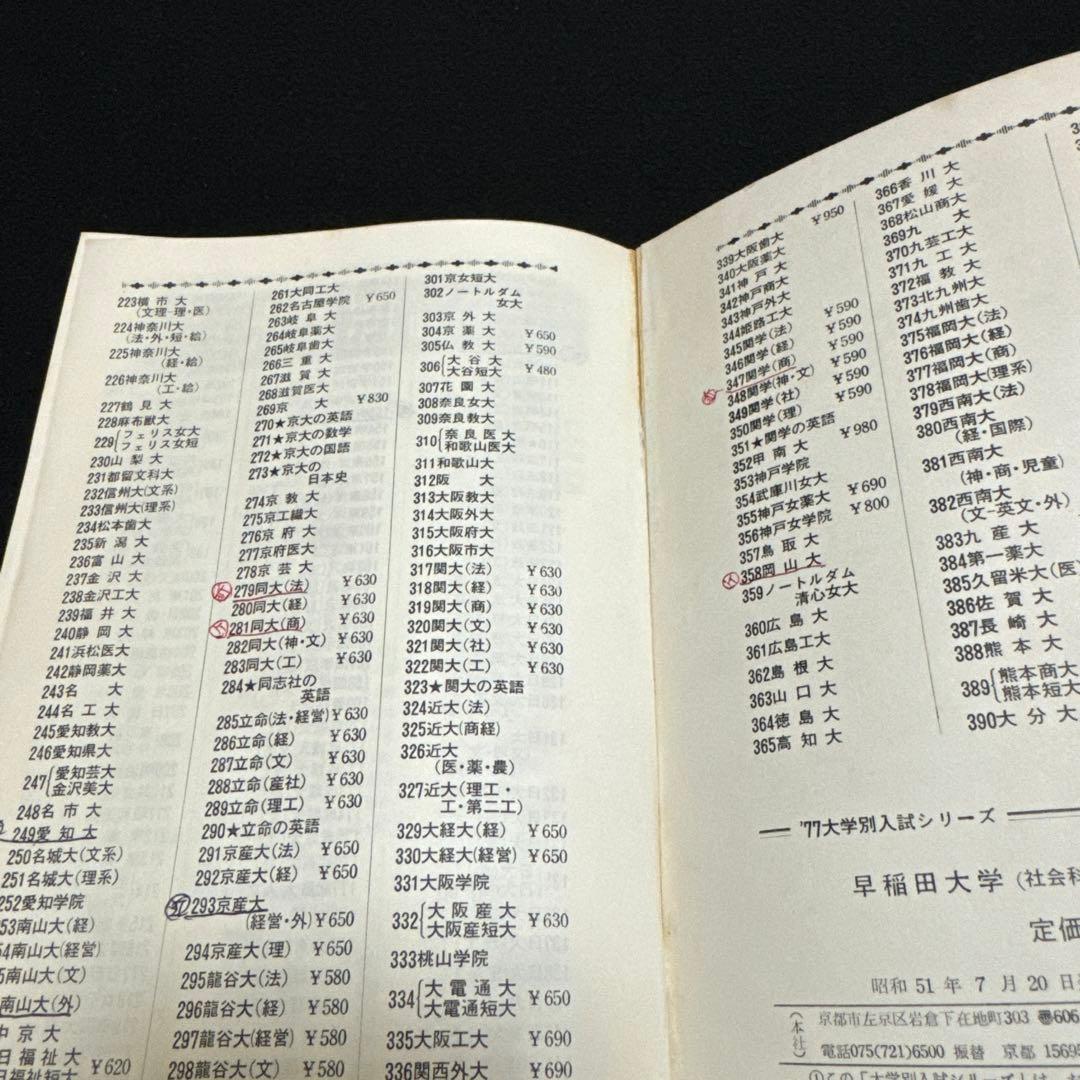 223横市大
(文理-理・医)
224神奈川大
(法・外・短・給)
225神奈川大
(経・給)
226神奈川大
(工・給)
227鶴見大
228麻布獣大
229{フェリス女大
フェリス女短
230山梨大
231都留文科大
232信州大(文系)
233信州大(理系)
234松本歯大
235新潟大
236富山大
237金沢大
238金沢工大
239福井大
240静岡大
241浜松医大
242静岡薬大
243名大
244名工大
245愛知教大
246愛知県大
247{愛知芸大
金沢美大
248名市大
249愛知大
250名城大(文系)
251名城大(理系)
252愛知学院
53南山大(経)
54南山大(経営)
5南山大(文)
南山大(外)
中京大
日福祉大
福祉短大 ¥620
261大同工大
262名古屋学院 ¥650
263岐阜大
264岐阜薬大
265岐阜歯大
266三重大
267滋賀大
268滋賀医大
269京大 ¥830
270★京大の英語
271★京大の数学
272★京大の国語
273★京大の
日本史
274京教大
275京工繊大
276京府大
277京府医大
278京芸大
279同大(法) ¥630
280同大(経) ¥630
281同大(商) ¥630
282同大(神・文) ¥630
283同大(工) ¥630
284★同志社の
英語
285立命(法・経営) ¥630
286立命(経) ¥630
287立命(文) ¥630
288立命(産社) ¥630
289立命(理工) ¥630
290★立命の英語
291京産大(法) ¥650
292京産大(経) ¥650
293京産大
(経営・外) ¥650
294京産大(理) ¥650
295龍谷大(法) ¥580
296龍谷大(経) ¥580
297龍谷大(経営) ¥580
298龍谷大(文) ¥580
301京女短大
302ノートルダム
女大
303京外大
304京薬大 ¥650
305仏教大 ¥590
306{大谷大
大谷短大 ¥480
307花園大
308奈良女大
309奈良教大
310{奈良医大
和歌山医大
311和歌山大
312阪大
313大阪教大
314大阪外大
315大阪府大
316大阪市大
317関大(法) ¥630
318関大(経) ¥630
319関大(商) ¥630
320関大(文) ¥630
321関大(社) ¥630
322関大(工) ¥630
323★関大の英語
324近大(法)
325近大(商経)
326近大
(医・薬・農)
327近大(理工・
工・第二工)
329大経大(経) ¥650
330大経大(経営) ¥650
331大阪学院
332{大阪産大
大阪産短大 ¥630
333桃山学院
334{大電通大
大電通短大 ¥650
335大阪工大 ¥690
336関西外大 ¥690
339大阪歯大 ¥950
340大阪薬大
341神戸大
342神戸商大
343神戸外大
344姫路工大
345関学(法) ¥590
346関学(経) ¥590
347関学(商) ¥590
348関学(神・文) ¥590
349関学(社) ¥590
350関学(理)
351★関学の英語
352甲南大 ¥980
353神戸学院
354武庫川女大
355神戸女薬大 ¥690
356神戸女学院 ¥800
357鳥取大
358岡山大
359ノートルダム
清心女大
360広島大
361広島工大
362島根大
363山口大
364徳島大
365高知大
366香川大
367愛媛大
368松山商大
369九大
370九芸工大
371九工大
372福教大
373北九州大
374九州歯大
375福岡大(法)
376福岡大(経)
377福岡大(商)
378福岡大(理系)
379西南大(法)
380西南大
(経・国際)
381西南大
(神・商・児童)
382西南大
(文-英文・外)
383九産大
384第一薬大
385久留米大(医)
386佐賀大
387長崎大
388熊本大
389{熊本商大
熊本短大
390大分大
'77大学別入試シリーズ
早稲田大学(社会科
定価
昭和51年7月20日
(本社)京都市左京区岩倉下在地町303 〠606
電話075(721)6500 振替 京都 15695
①この「大学別入試シリーズ」は